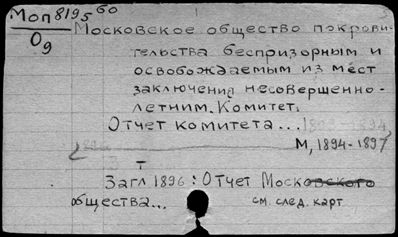 Моп 8195 бо
О9
Московское общество покрови-
тельства беспризорным и
освобождаемым из мест
заключения несовершенно-
летним. Комитет.
Отчет комитета...
М, 1894-1897
т
Загл 1896: Отчет Московского
общества...
см. след. карт.